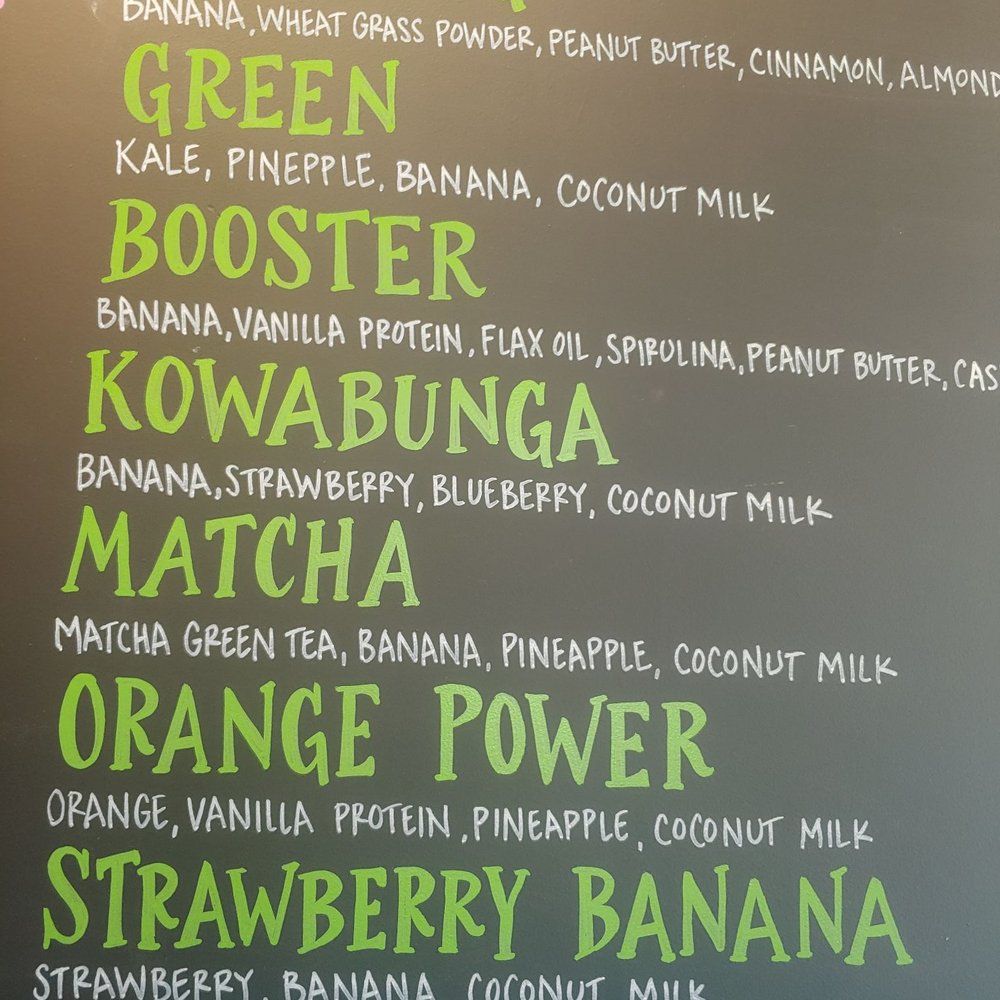 BANANA, WHEAT GRASS POWDER, PEANUT BUTTER, CINNAMON, ALMOND
GREEN
KALE, PINEPPLE. BANANA, COCONUT MILK
BOOSTER
BANANA, VANILLA PROTEIN, FLAX OIL, SPIRULINA, PEANUT BUTTER, CAS
KOWABUNGA
BANANA, STRAWBERRY, BLUEBERRY, COCONUT MILK
MATCHA
MATCHA GREEN TEA, BANANA, PINEAPPLE, COCONUT MILK
ORANGE POWER
ORANGE, VANILLA PROTEIN, PINEAPPLE, COCONUT MILK
STRAWBERRY BANANA
STRAWBERRY, BANANA, COCONUT MILK